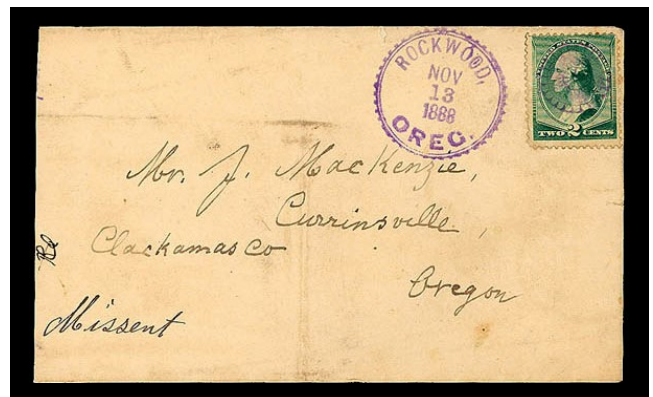 ROCKWOOD,
NOV
13
1888
OREG.
UNITED STATES POSTAGE
TWO 2 CENTS
Mr. J. MacKenzie,
Currinsville,
Clackamas Co
Oregon
Missent